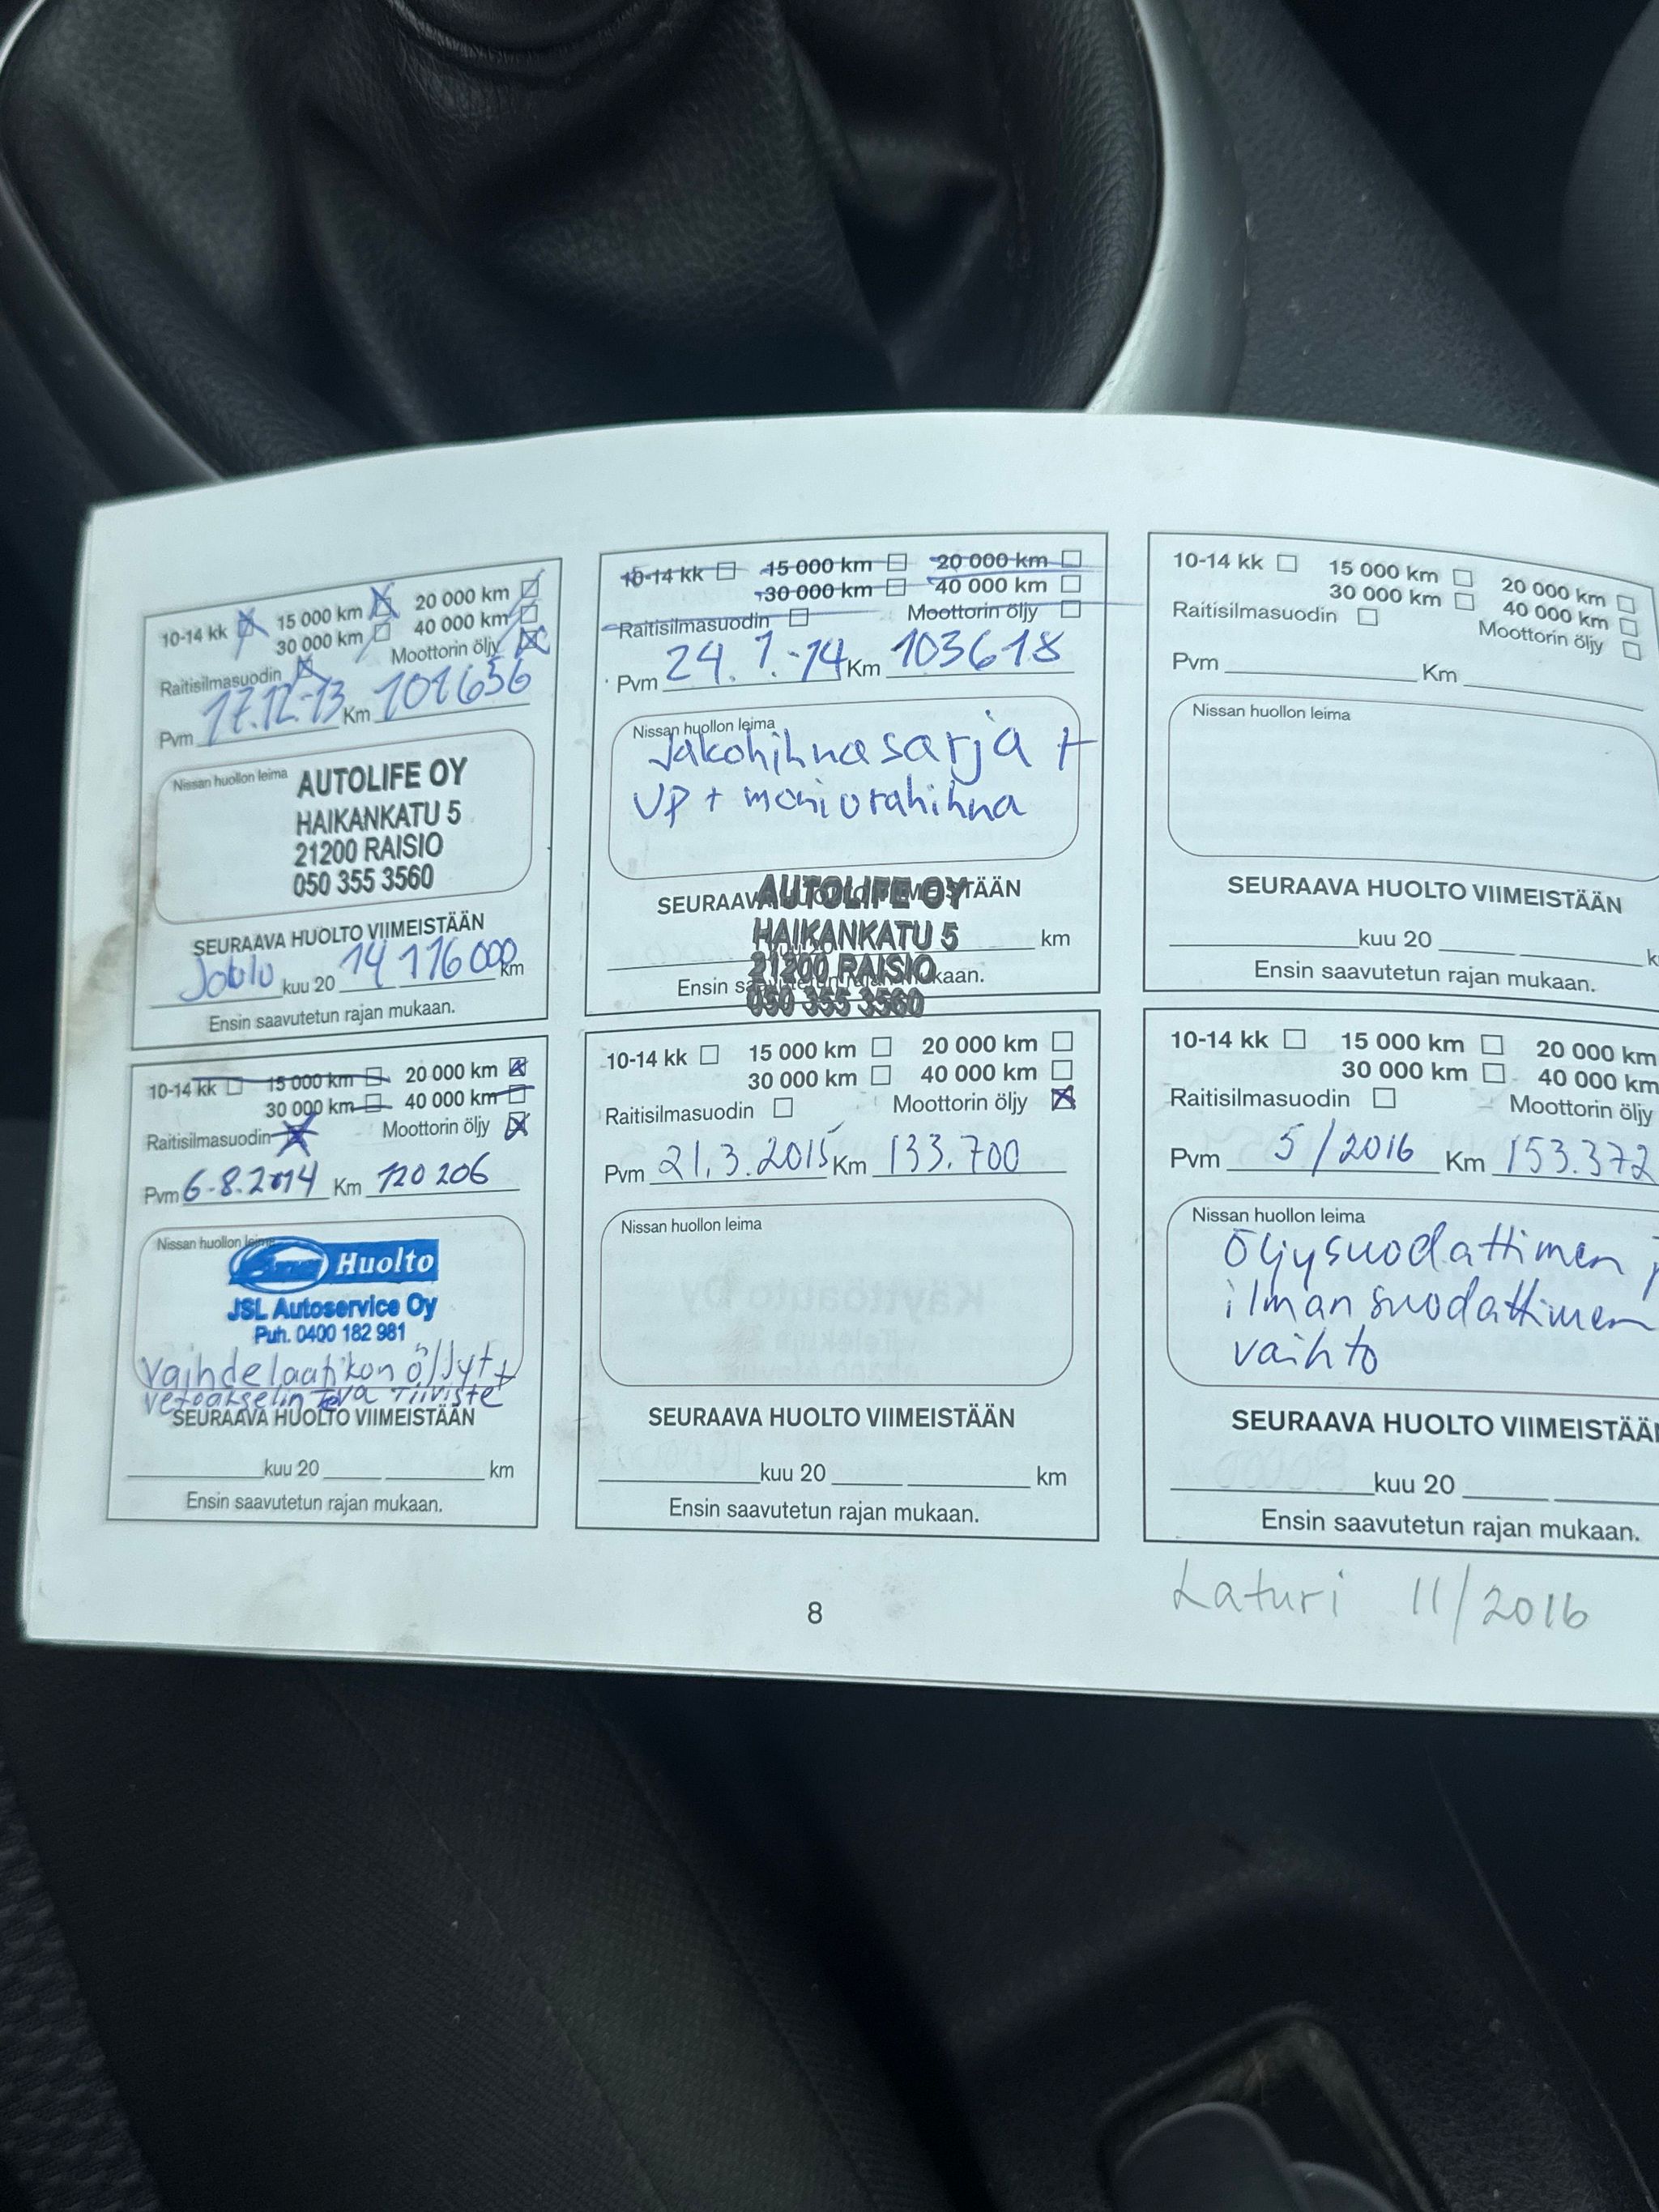 10-14 kk 15 000 km 20 000 km
30 000 km 40 000 km
Raitisilmasuodin Moottorin öljy
Pvm 17.12.-13 Km 101656
Nissan huollon leima
AUTOLIFE OY
HAIKANKATU 5
21200 RAISIO
050 355 3560
SEURAAVA HUOLTO VIIMEISTÄÄN
Joulu kuu 20 14 116000 km
Ensin saavutetun rajan mukaan.
10-14 kk 15 000 km 20 000 km
30 000 km 40 000 km
Raitisilmasuodin Moottorin öljy
Pvm 24.1.-14 Km 103618
Nissan huollon leima
Jakohihnasarja +
VP + moniurahihna
SEURAAVA HUOLTO VIIMEISTÄÄN
AUTOLIFE OY
HAIKANKATU 5
km
21200 RAISIO
Ensin saavutetun rajan mukaan.
050 355 3560
10-14 kk 15 000 km 20 000 km
30 000 km 40 000 km
Raitisilmasuodin Moottorin öljy
Pvm Km
Nissan huollon leima
SEURAAVA HUOLTO VIIMEISTÄÄN
kuu 20
Ensin saavutetun rajan mukaan.
10-14 kk 15 000 km 20 000 km
30 000 km 40 000 km
Raitisilmasuodin Moottorin öljy
Pvm 6.8.2014 Km 120 206
Nissan huollon leima
Huolto
JSL Autoservice Oy
Puh. 0400 182 981
Vaihdelaatikon öljyt +
vetoakselin tiiviste
SEURAAVA HUOLTO VIIMEISTÄÄN
kuu 20 km
Ensin saavutetun rajan mukaan.
10-14 kk 15 000 km 20 000 km
30 000 km 40 000 km
Raitisilmasuodin Moottorin öljy
Pvm 21.3.2015 Km 133.700
Nissan huollon leima
SEURAAVA HUOLTO VIIMEISTÄÄN
kuu 20 km
Ensin saavutetun rajan mukaan.
10-14 kk 15 000 km 20 000 km
30 000 km 40 000 km
Raitisilmasuodin Moottorin öljy
Pvm 5/2016 Km 153.372
Nissan huollon leima
Öljysuodattimen
ilmansuodattimen
vaihto
SEURAAVA HUOLTO VIIMEISTÄÄN
kuu 20
Ensin saavutetun rajan mukaan.
Laturi 11/2016
8